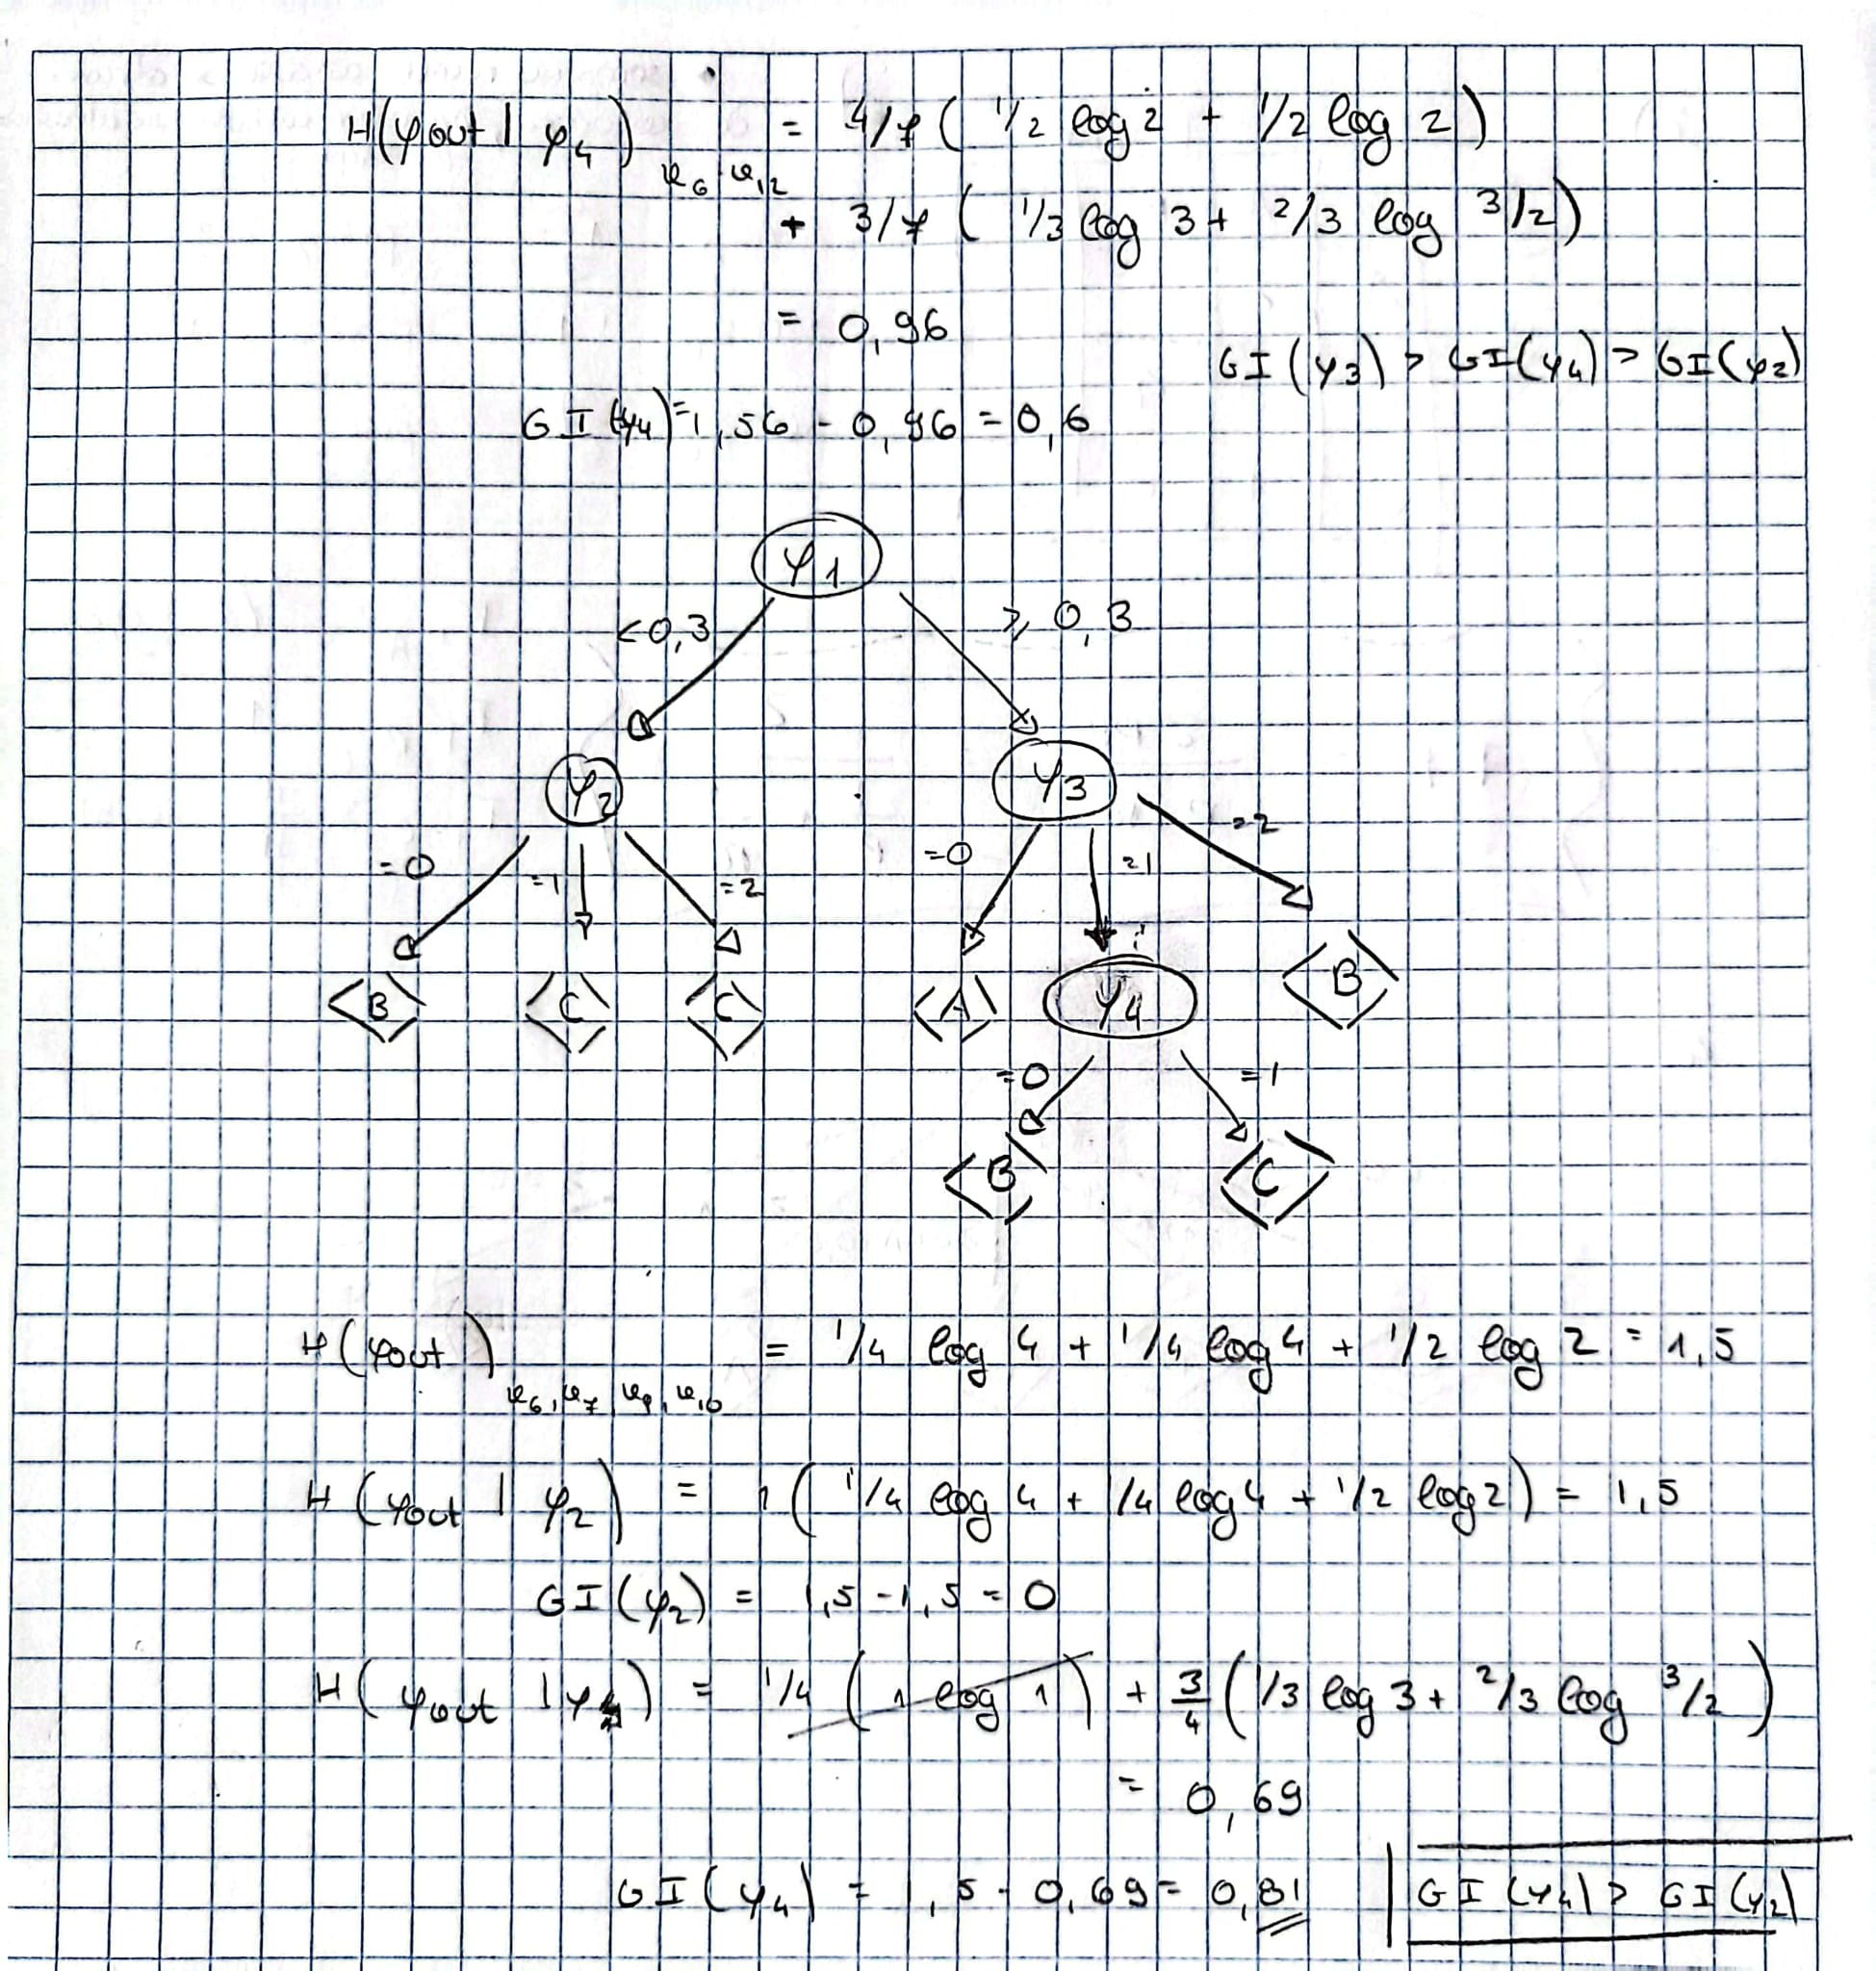 H(yout | y4) x6-x12 = 4/7 ( 1/2 log 2 + 1/2 log 2 )
+ 3/7 ( 1/3 log 3 + 2/3 log 3/2 )
= 0,96
GI(y3) > GI(y4) > GI(y2)
GI(y4) = 1,56 - 0,96 = 0,6
y1
<0,3
≥ 0,3
y2
y3
=0
=1
=2
=0
=1
=2
B
C
C
A
y4
B
=0
=1
B
C
H(yout) x6, x7, x9, x10 = 1/4 log 4 + 1/4 log 4 + 1/2 log 2 = 1,5
H(yout | y2) = 1 ( 1/4 log 4 + 1/4 log 4 + 1/2 log 2 ) = 1,5
GI(y2) = 1,5 - 1,5 = 0
H(yout | y4) = 1/4 ( 1 log 1 ) + 3/4 ( 1/3 log 3 + 2/3 log 3/2 )
= 0,69
GI(y4) = 1,5 - 0,69 = 0,81
GI(y4) > GI(y2)